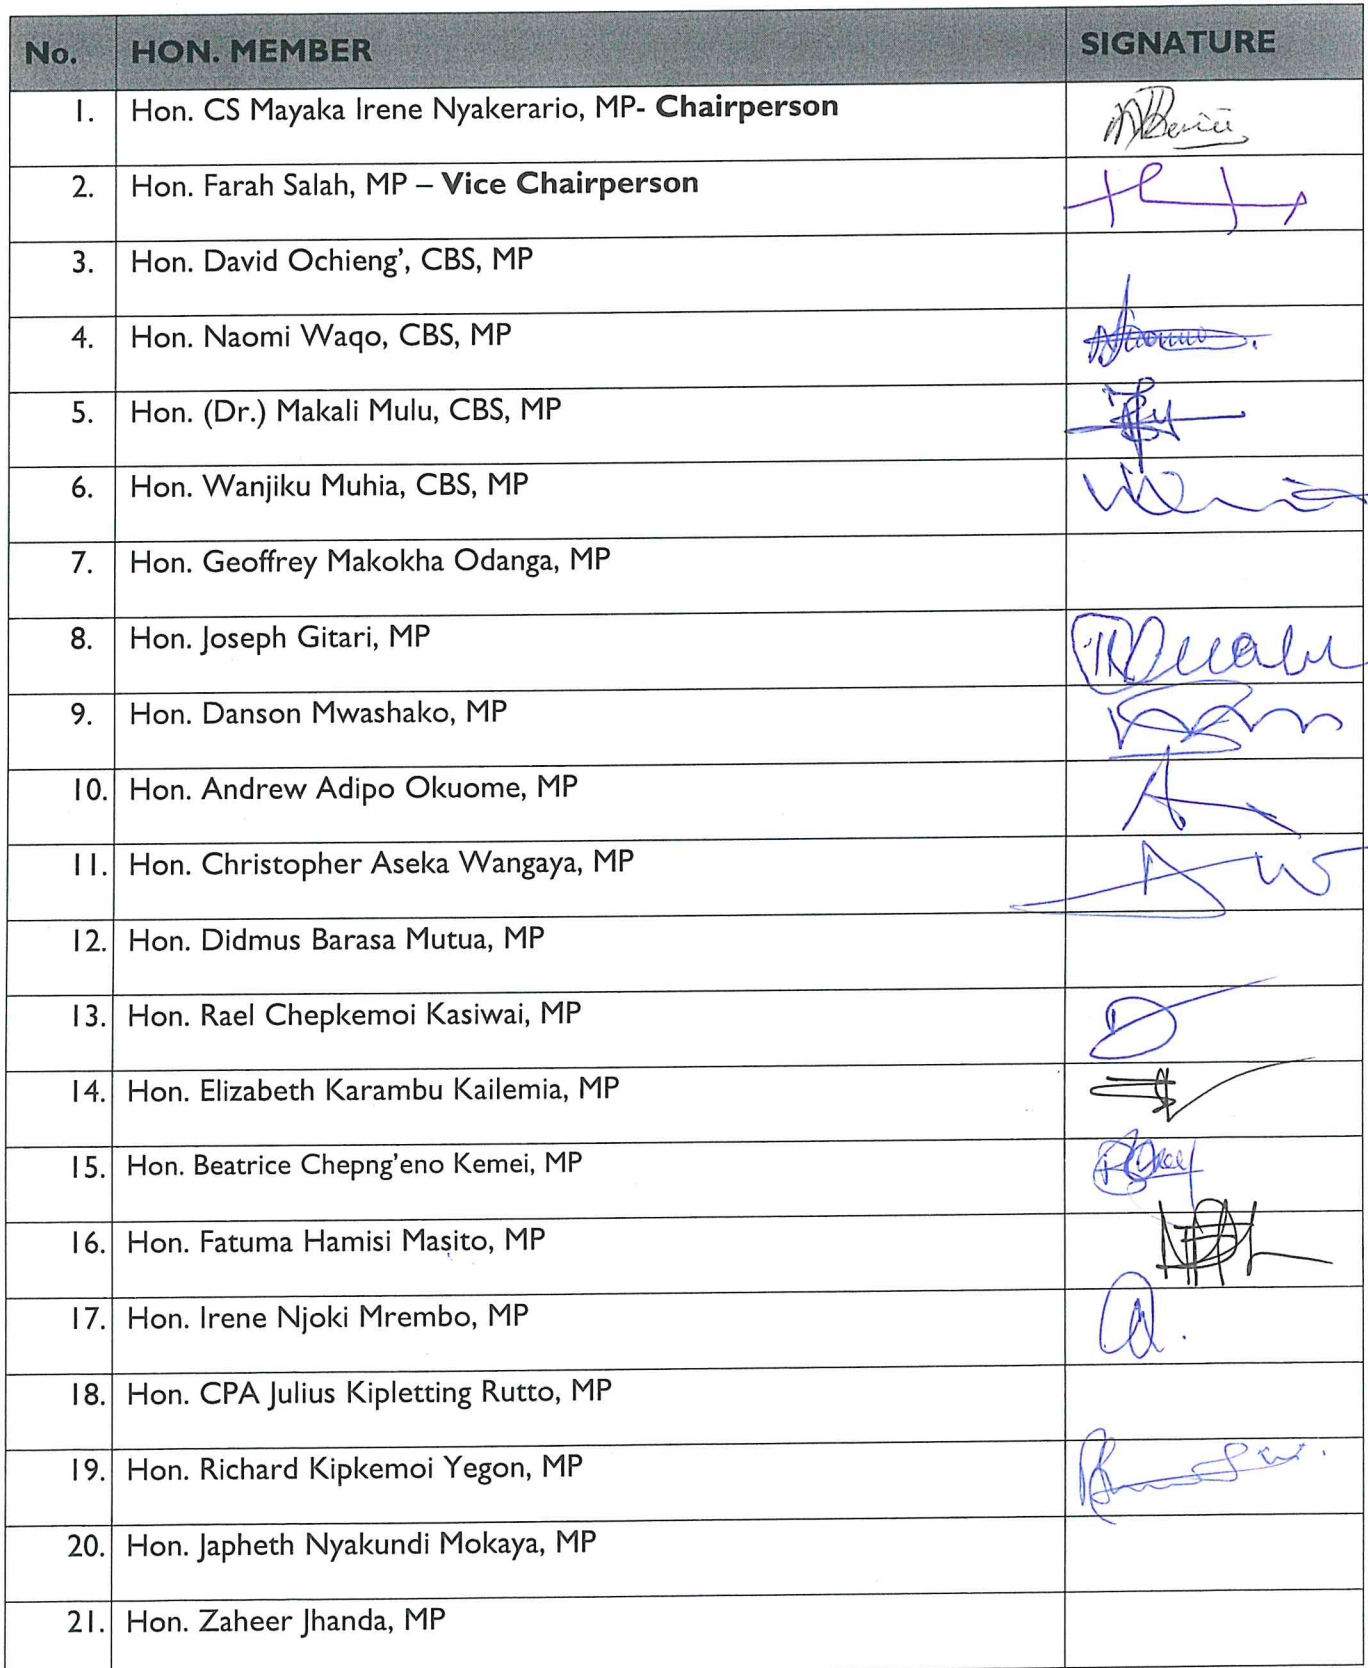 No. HON. MEMBER SIGNATURE
1. Hon. CS Mayaka Irene Nyakerario, MP- Chairperson
2. Hon. Farah Salah, MP – Vice Chairperson
3. Hon. David Ochieng’, CBS, MP
4. Hon. Naomi Waqo, CBS, MP
5. Hon. (Dr.) Makali Mulu, CBS, MP
6. Hon. Wanjiku Muhia, CBS, MP
7. Hon. Geoffrey Makokha Odanga, MP
8. Hon. Joseph Gitari, MP
9. Hon. Danson Mwashako, MP
10. Hon. Andrew Adipo Okuome, MP
11. Hon. Christopher Aseka Wangaya, MP
12. Hon. Didmus Barasa Mutua, MP
13. Hon. Rael Chepkemoi Kasiwai, MP
14. Hon. Elizabeth Karambu Kailemia, MP
15. Hon. Beatrice Chepng'eno Kemei, MP
16. Hon. Fatuma Hamisi Masito, MP
17. Hon. Irene Njoki Mrembo, MP
18. Hon. CPA Julius Kipletting Rutto, MP
19. Hon. Richard Kipkemoi Yegon, MP
20. Hon. Japheth Nyakundi Mokaya, MP
21. Hon. Zaheer Jhanda, MP